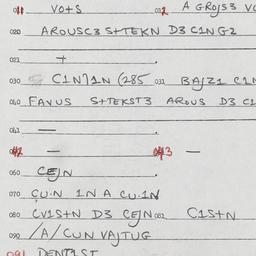 011 VOTS 012 A GROJS3 VO
020 AROUSC3 S+TEKN D3 C1NG2
021 +
030 C1N71N (285 031 BAJZ1 C1N
040 FAVUS S+TEKST3 AROUS D3 C1
041 —
042 — 043 —
060 CEJN
070 CU.N 1N A CU.1N
080 CV1S+N D3 CEJN 081 C1S+N
090 /A/CUN VAJTUG
091 DENTIST